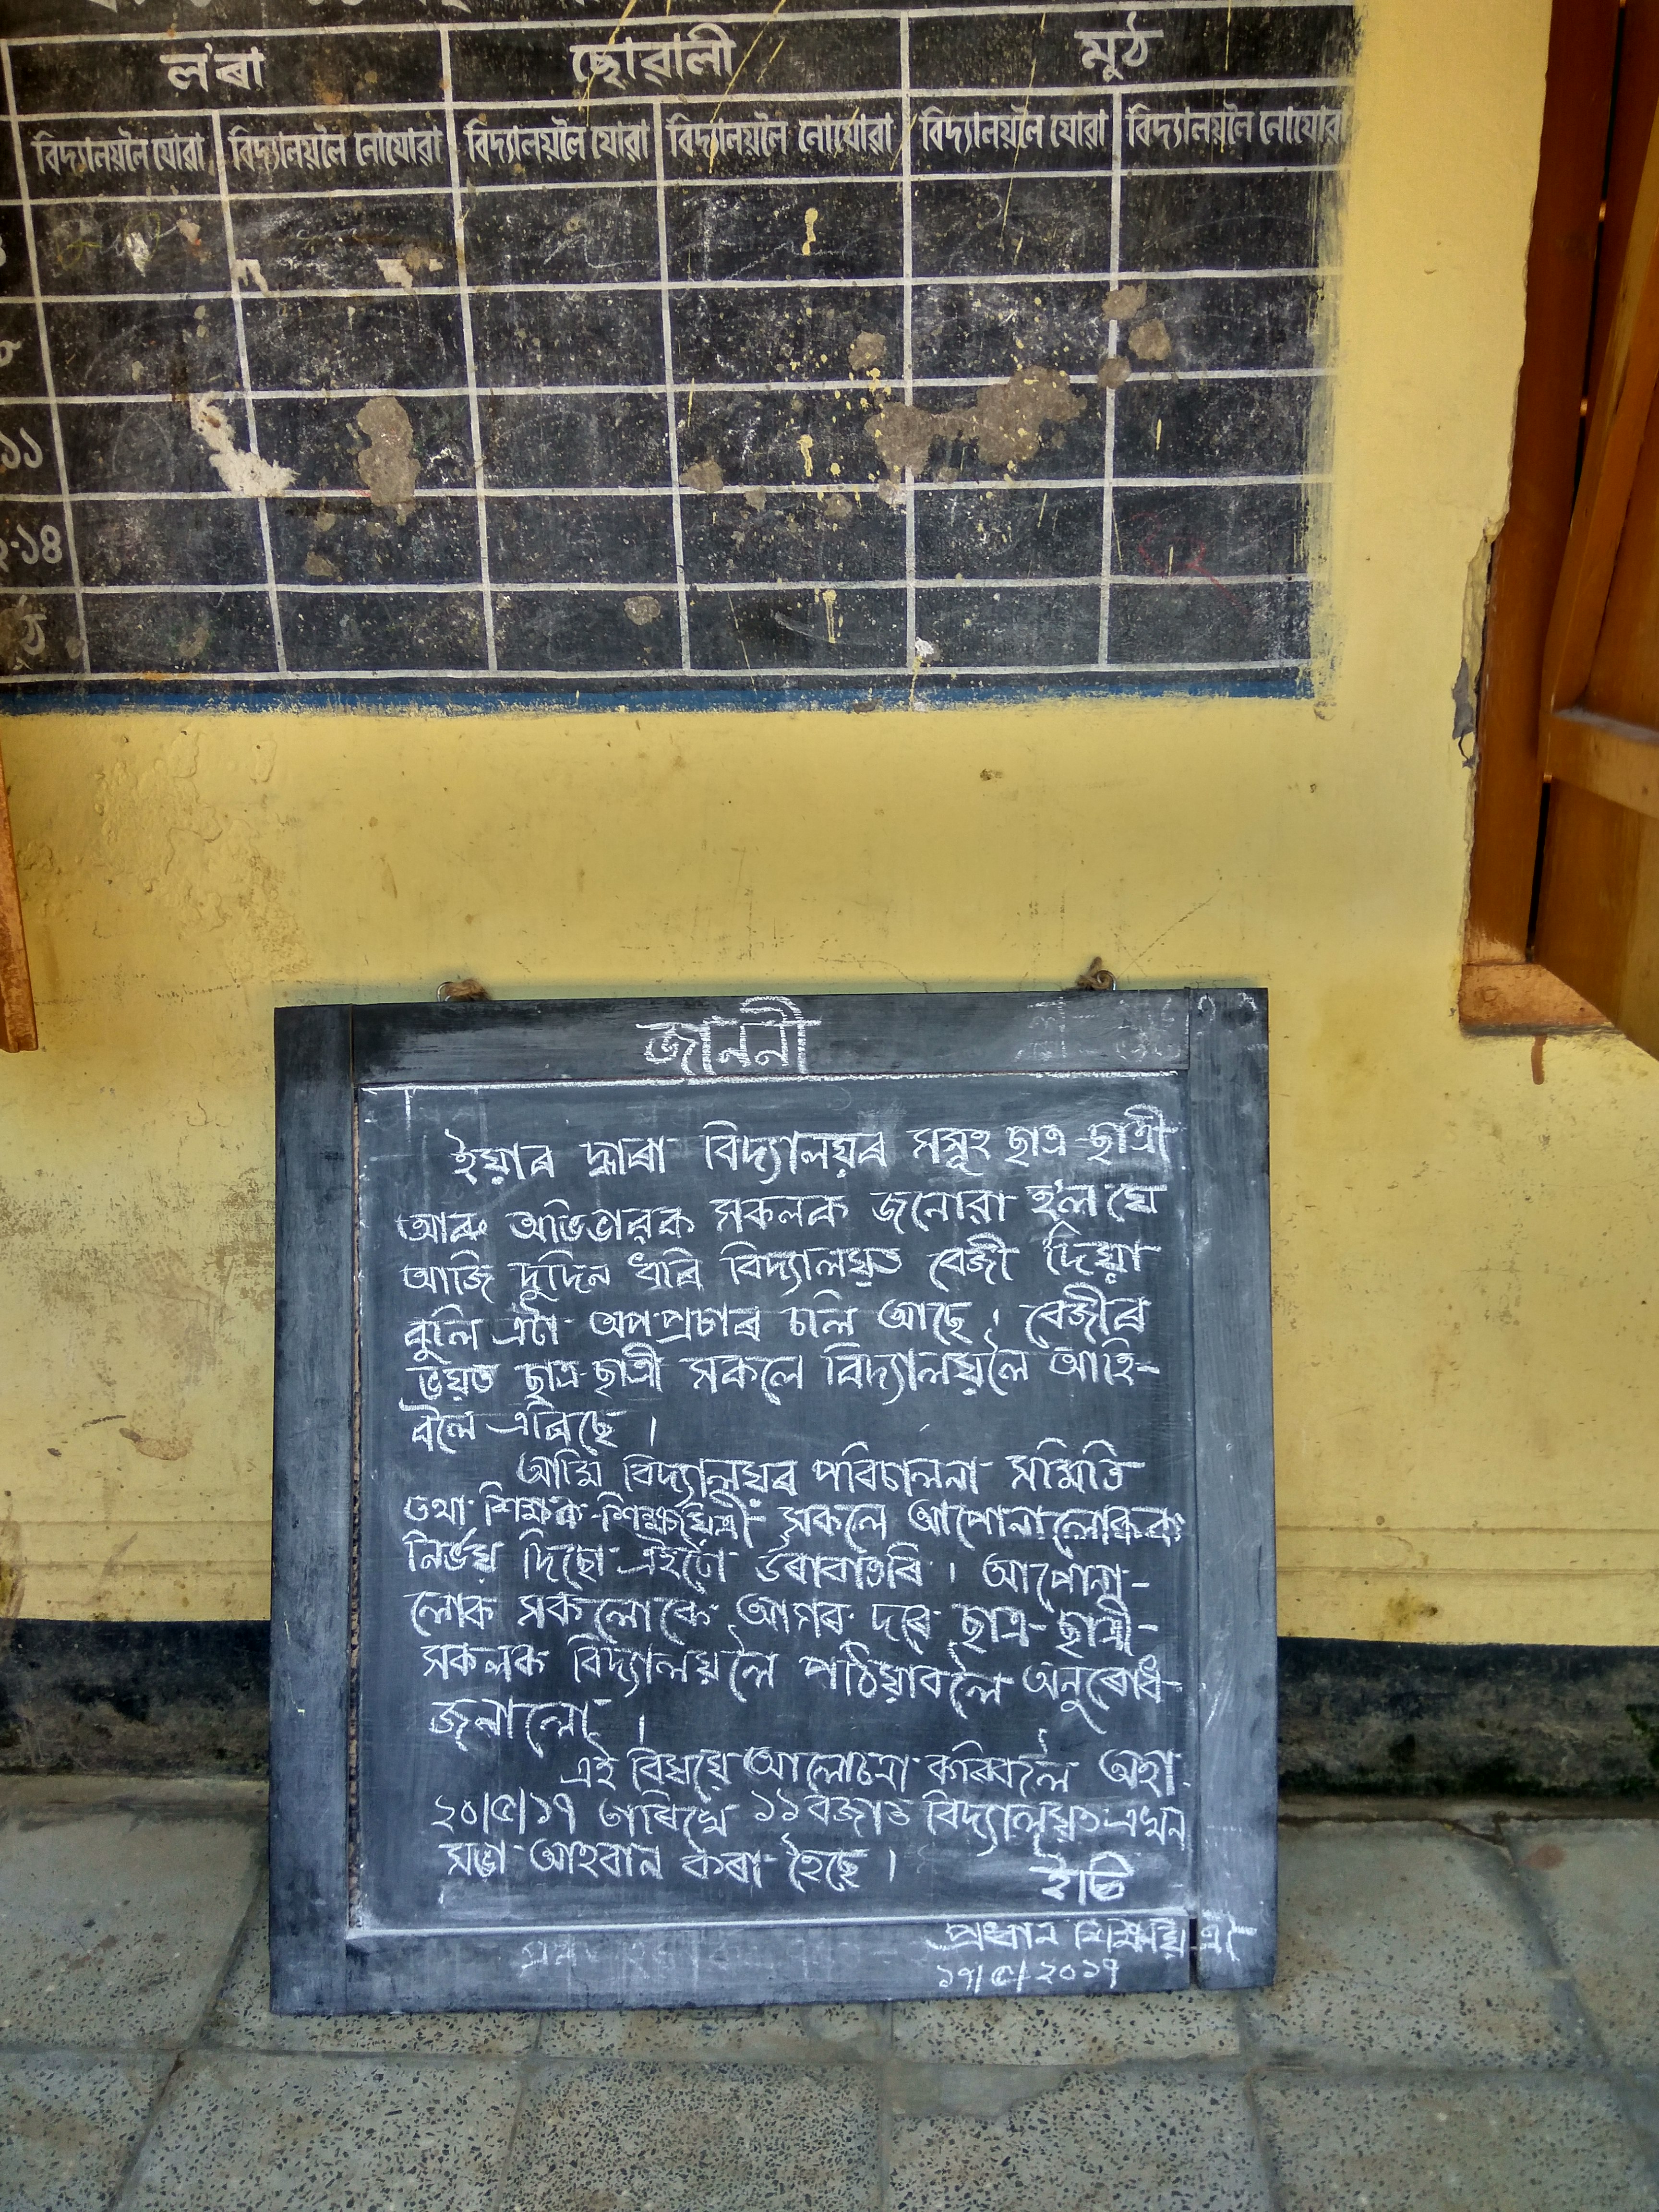 ল'ৰা ছোৱালী মুঠ
বিদ্যালয়লৈ যোৱা বিদ্যালয়লৈ নোযোৱা বিদ্যালয়লৈ যোৱা বিদ্যালয়লৈ নোযোৱা বিদ্যালয়লৈ যোৱা বিদ্যালয়লৈ নোযোৱা
৮
১১
২-১৪
ঠ
জাননী
ইয়াৰ দ্বাৰা বিদ্যালয়ৰ সমূহ ছাত্ৰ-ছাত্ৰী
আৰু অভিভাৱক সকলক জনোৱা হ'ল যে
আজি দুদিন ধৰি বিদ্যালয়ত বেজী দিয়া
বুলি এটা অপপ্ৰচাৰ চলি আছে। বেজীৰ
ভয়ত ছাত্ৰ-ছাত্ৰী সকলে বিদ্যালয়লৈ আহি-
বলৈ এৰিছে।
আমি বিদ্যালয়ৰ পৰিচালনা সমিতি
তথা শিক্ষক-শিক্ষয়িত্ৰী সকলে আপোনালোকক
নিৰ্ভয় দিছো এইটো উৰাবাতৰি। আপোনা-
লোক সকলোকে আগৰ দৰে ছাত্ৰ-ছাত্ৰী-
সকলক বিদ্যালয়লৈ পঠিয়াবলৈ অনুৰোধ
জনালো।
এই বিষয়ে আলোচনা কৰিবলৈ অহা
২০/৫/১৭ তাৰিখে ১১ বজাত বিদ্যালয়ত এখন
সভা আহবান কৰা হৈছে।
ইতি
প্ৰধান শিক্ষয়িত্ৰী
১৭/৫/২০১৭